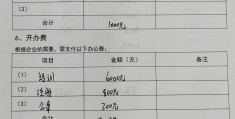 （3）
合计 1000元
6、开办费
根据企业的需要，需支付以下办公费：
项目 金额（元） 备注
（1） 培训 6000元
（2） 注册 400元
（3） 200元
合计